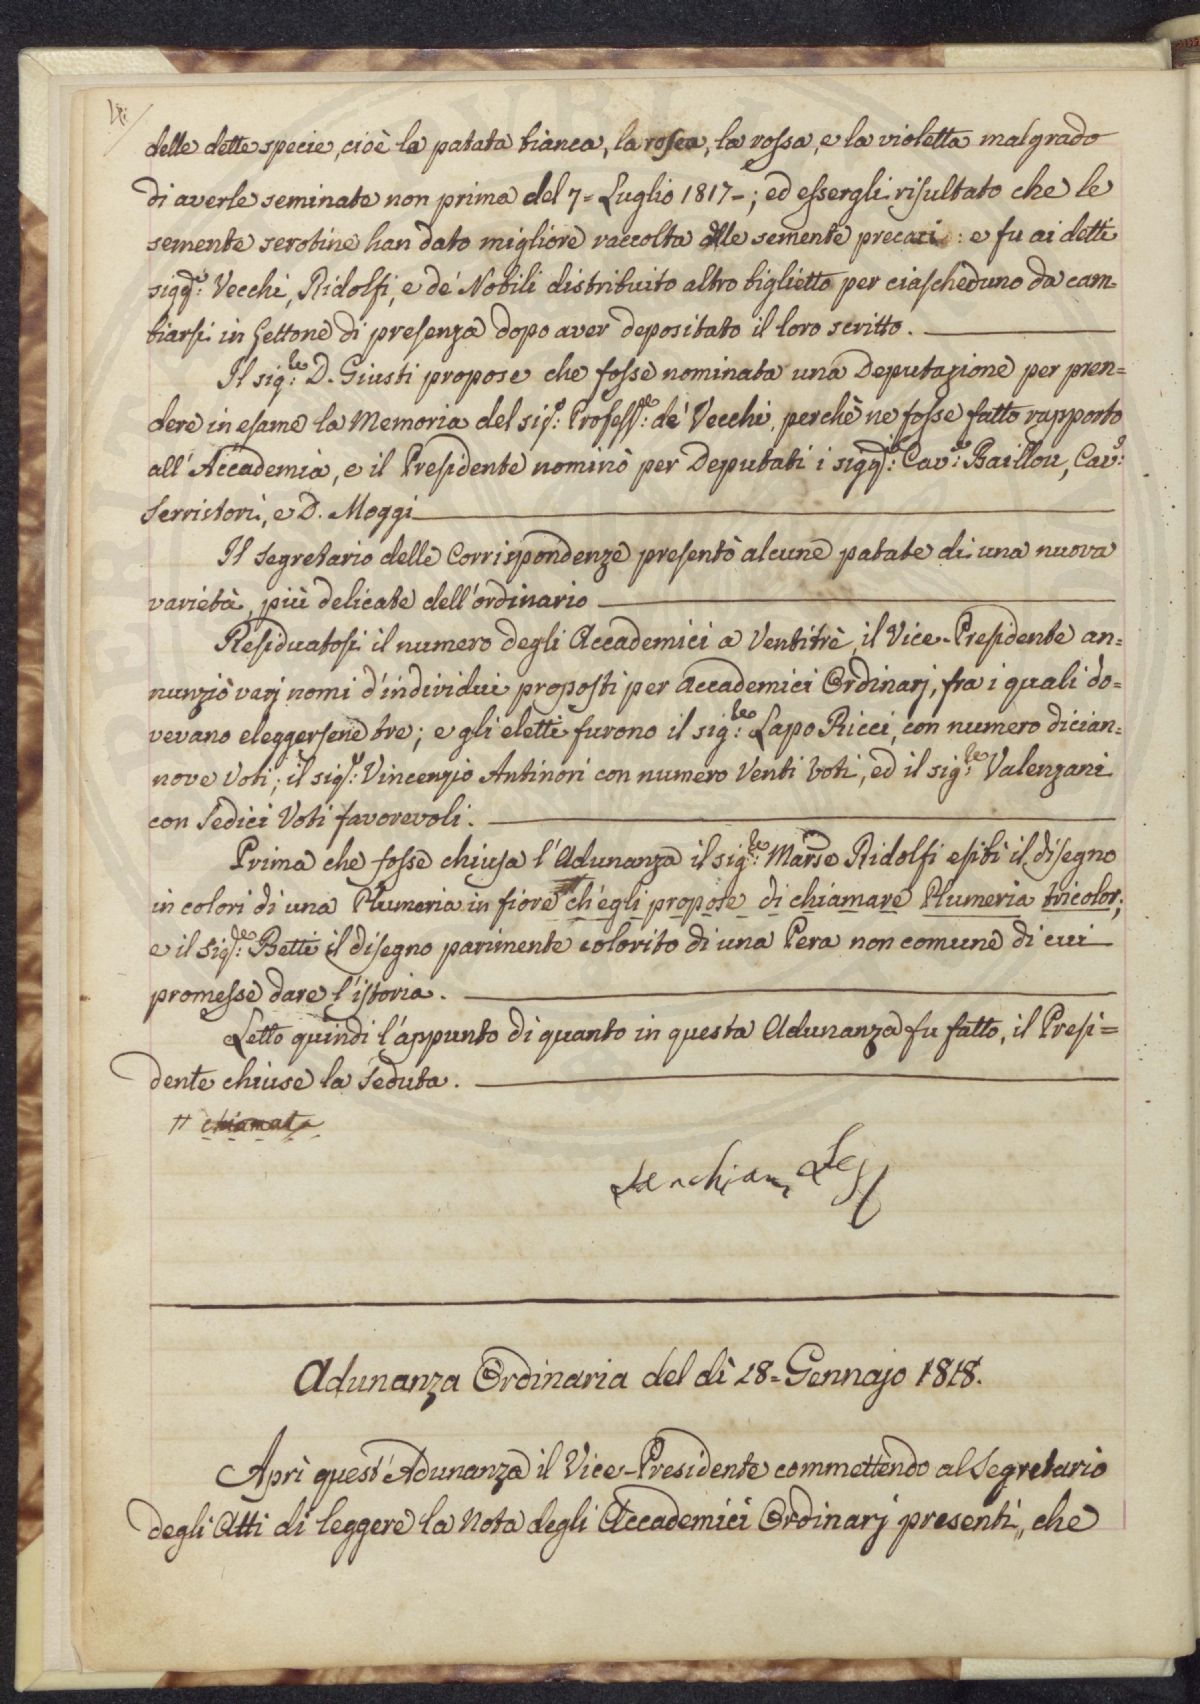 4.
delle dette specie, cioè la patata bianca, la rosea, la rossa, e la violetta malgrado
di averle seminate non prima del 7= Luglio 1817-; ed essergli risultato che le
semente serotine han dato migliore raccolta delle semente precaci: e fu ai detti
sigg.ri Vecchi, Ridolfi, e de' Nobili distribuito altro biglietto per ciascheduno da cam=
biarsi in Gettone di presenza dopo aver depositato il loro scritto.
Il sig.re D. Giusti propose che fosse nominata una Deputazione per pren=
dere in esame la Memoria del sig.r Profess.re de' Vecchi, perchè ne fosse fatto rapporto
all'Accademia, e il Presidente nominò per Deputati i sigg.ri Cav.re Baillou, Cav.r
Serristori, e D. Moggi
Il Segretario delle Corrispondenze presentò alcune patate di una nuova
varietà, più delicate dell'ordinario
Residuatosi il numero degli Accademici a Ventitrè, il Vice-Presidente an=
nunziò varj nomi d'individui proposti per Accademici Ordinarj, fra i quali do=
vevano eleggersene tre; e gli eletti furono il sig.re Lapo Ricci, con numero dician=
nove Voti; il sig.r Vincenzio Antinori con numero Venti Voti, ed il sig.re Valenzani
con Sedici Voti favorevoli.
Prima che fosse chiusa l'Adunanza il sig.re Marse Ridolfi esibì il disegno
in colori di una Plumeria in fiore ch'egli propose di chiamare Plumeria tricolor;
e il sig.re Betti il disegno parimente colorito di una Pera non comune di cui
promesse dare l'istoria.
Letto quindi l'appunto di quanto in questa Adunanza fu fatto, il Presi=
dente chiuse la Seduta.
chiamata
Adunanza Ordinaria del dì 18= Gennajo 1818.
Aprì quest'Adunanza il Vice-Presidente commettendo al Segretario
degli Atti di leggere la Nota degli Accademici Ordinarj presenti, che